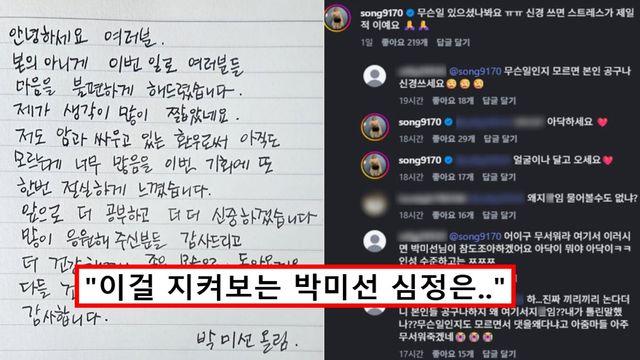 안녕하세요 여러분.
본의 아니게 이번 일로 여러분들
마음을 불편하게 해드렸습니다.
제가 생각이 많이 짧았네요.
저도 암과 싸우고 있는 환우로써 아직도
모르는게 너무 많음을 이번 기회에 또
한번 절실하게 느꼈습니다.
앞으로 더 공부하고 더 더 신중하겠습니다
많이 응원해 주신분들 감사드리고
더 건강
다들
감사합니다.
박미선 올림.
song9170 무슨일 있으셨나봐요 ㅠㅠ 신경 쓰면 스트레스가 제일
적 이예요
1일 좋아요 219개 답글 달기
@song9170 무슨일인지 모르면 본인 공구나
신경쓰세요
19시간 좋아요 18개 답글 달기
song9170 아닥하세요
18시간 좋아요 29개 답글 달기
song9170 얼굴이나 달고 오세요
18시간 좋아요 17개 답글 달기
왜지 임 물어볼수도 없냐?
18시간 좋아요 16개 답글 달기
@song9170 어이구 무서워라 여기서 이러시
면 박미선님이 참도조아하겠어요 아닥이 뭐야 아닥이ㅋㅋ
인성 수준하고는 ㅉㅉㅉ
하...진짜 끼리끼리 논다더
니 본인들 공구나하지 왜 여기서지 임??내가 틀린말했
나??무슨일인지도 모르면서 댓을왜다냐고 아줌마들 아주
무서워죽겠네
15시간 좋아요 15개 답글 달기
"이걸 지켜보는 박미선 심정은.."